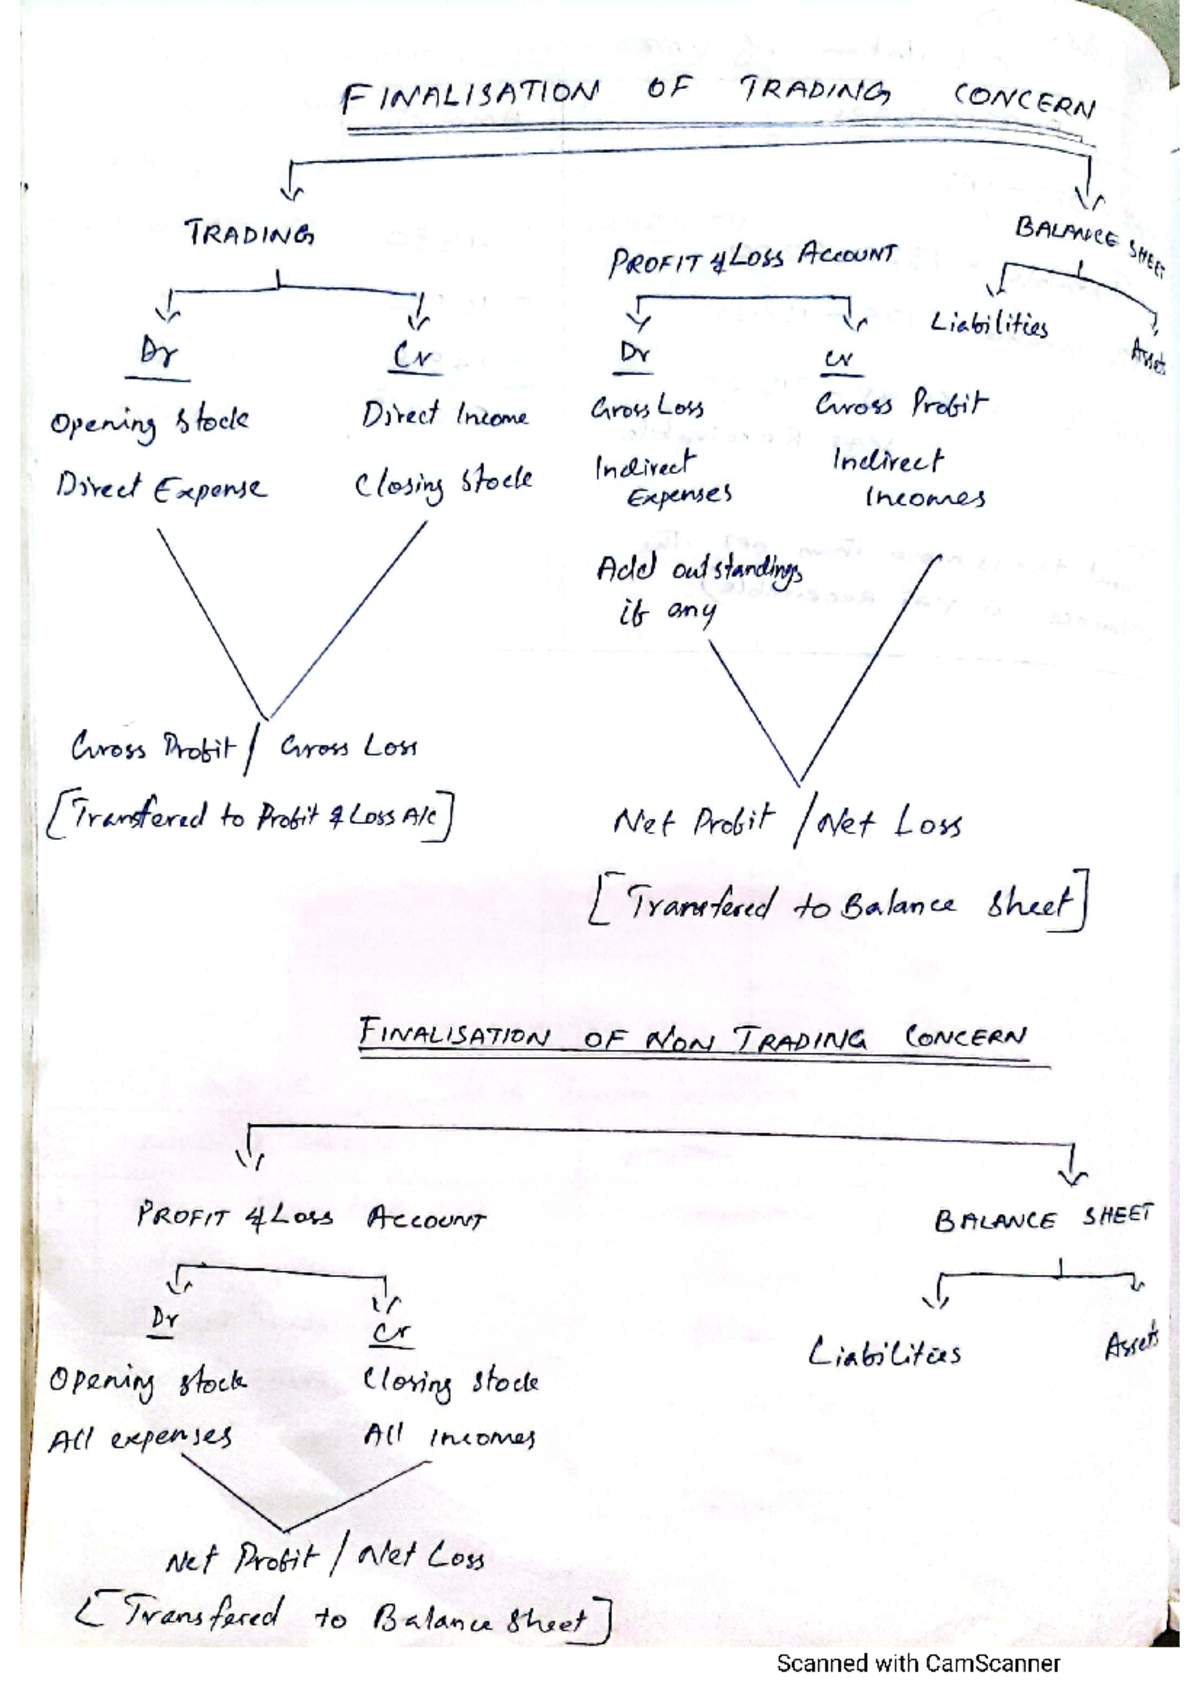 FINALISATION OF TRADING CONCERN
TRADING
PROFIT & LOSS ACCOUNT
BALANCE SHEET
Dr
Cr
Dr
Cr
Liabilities
Assets
Opening Stock
Direct Income
Gross Loss
Gross Profit
Direct Expense
Closing Stock
Indirect
Expenses
Indirect
Incomes
Add outstandings
if any
Gross Profit / Gross Loss
[Transfered to Profit & Loss A/c]
Net Profit / Net Loss
[Transfered to Balance Sheet]
FINALISATION OF NON TRADING CONCERN
PROFIT & LOSS ACCOUNT
BALANCE SHEET
Dr
Cr
Liabilities
Assets
Opening stock
Closing stock
All expenses
All incomes
Net Profit / Net Loss
[Transfered to Balance Sheet]
Scanned with CamScanner